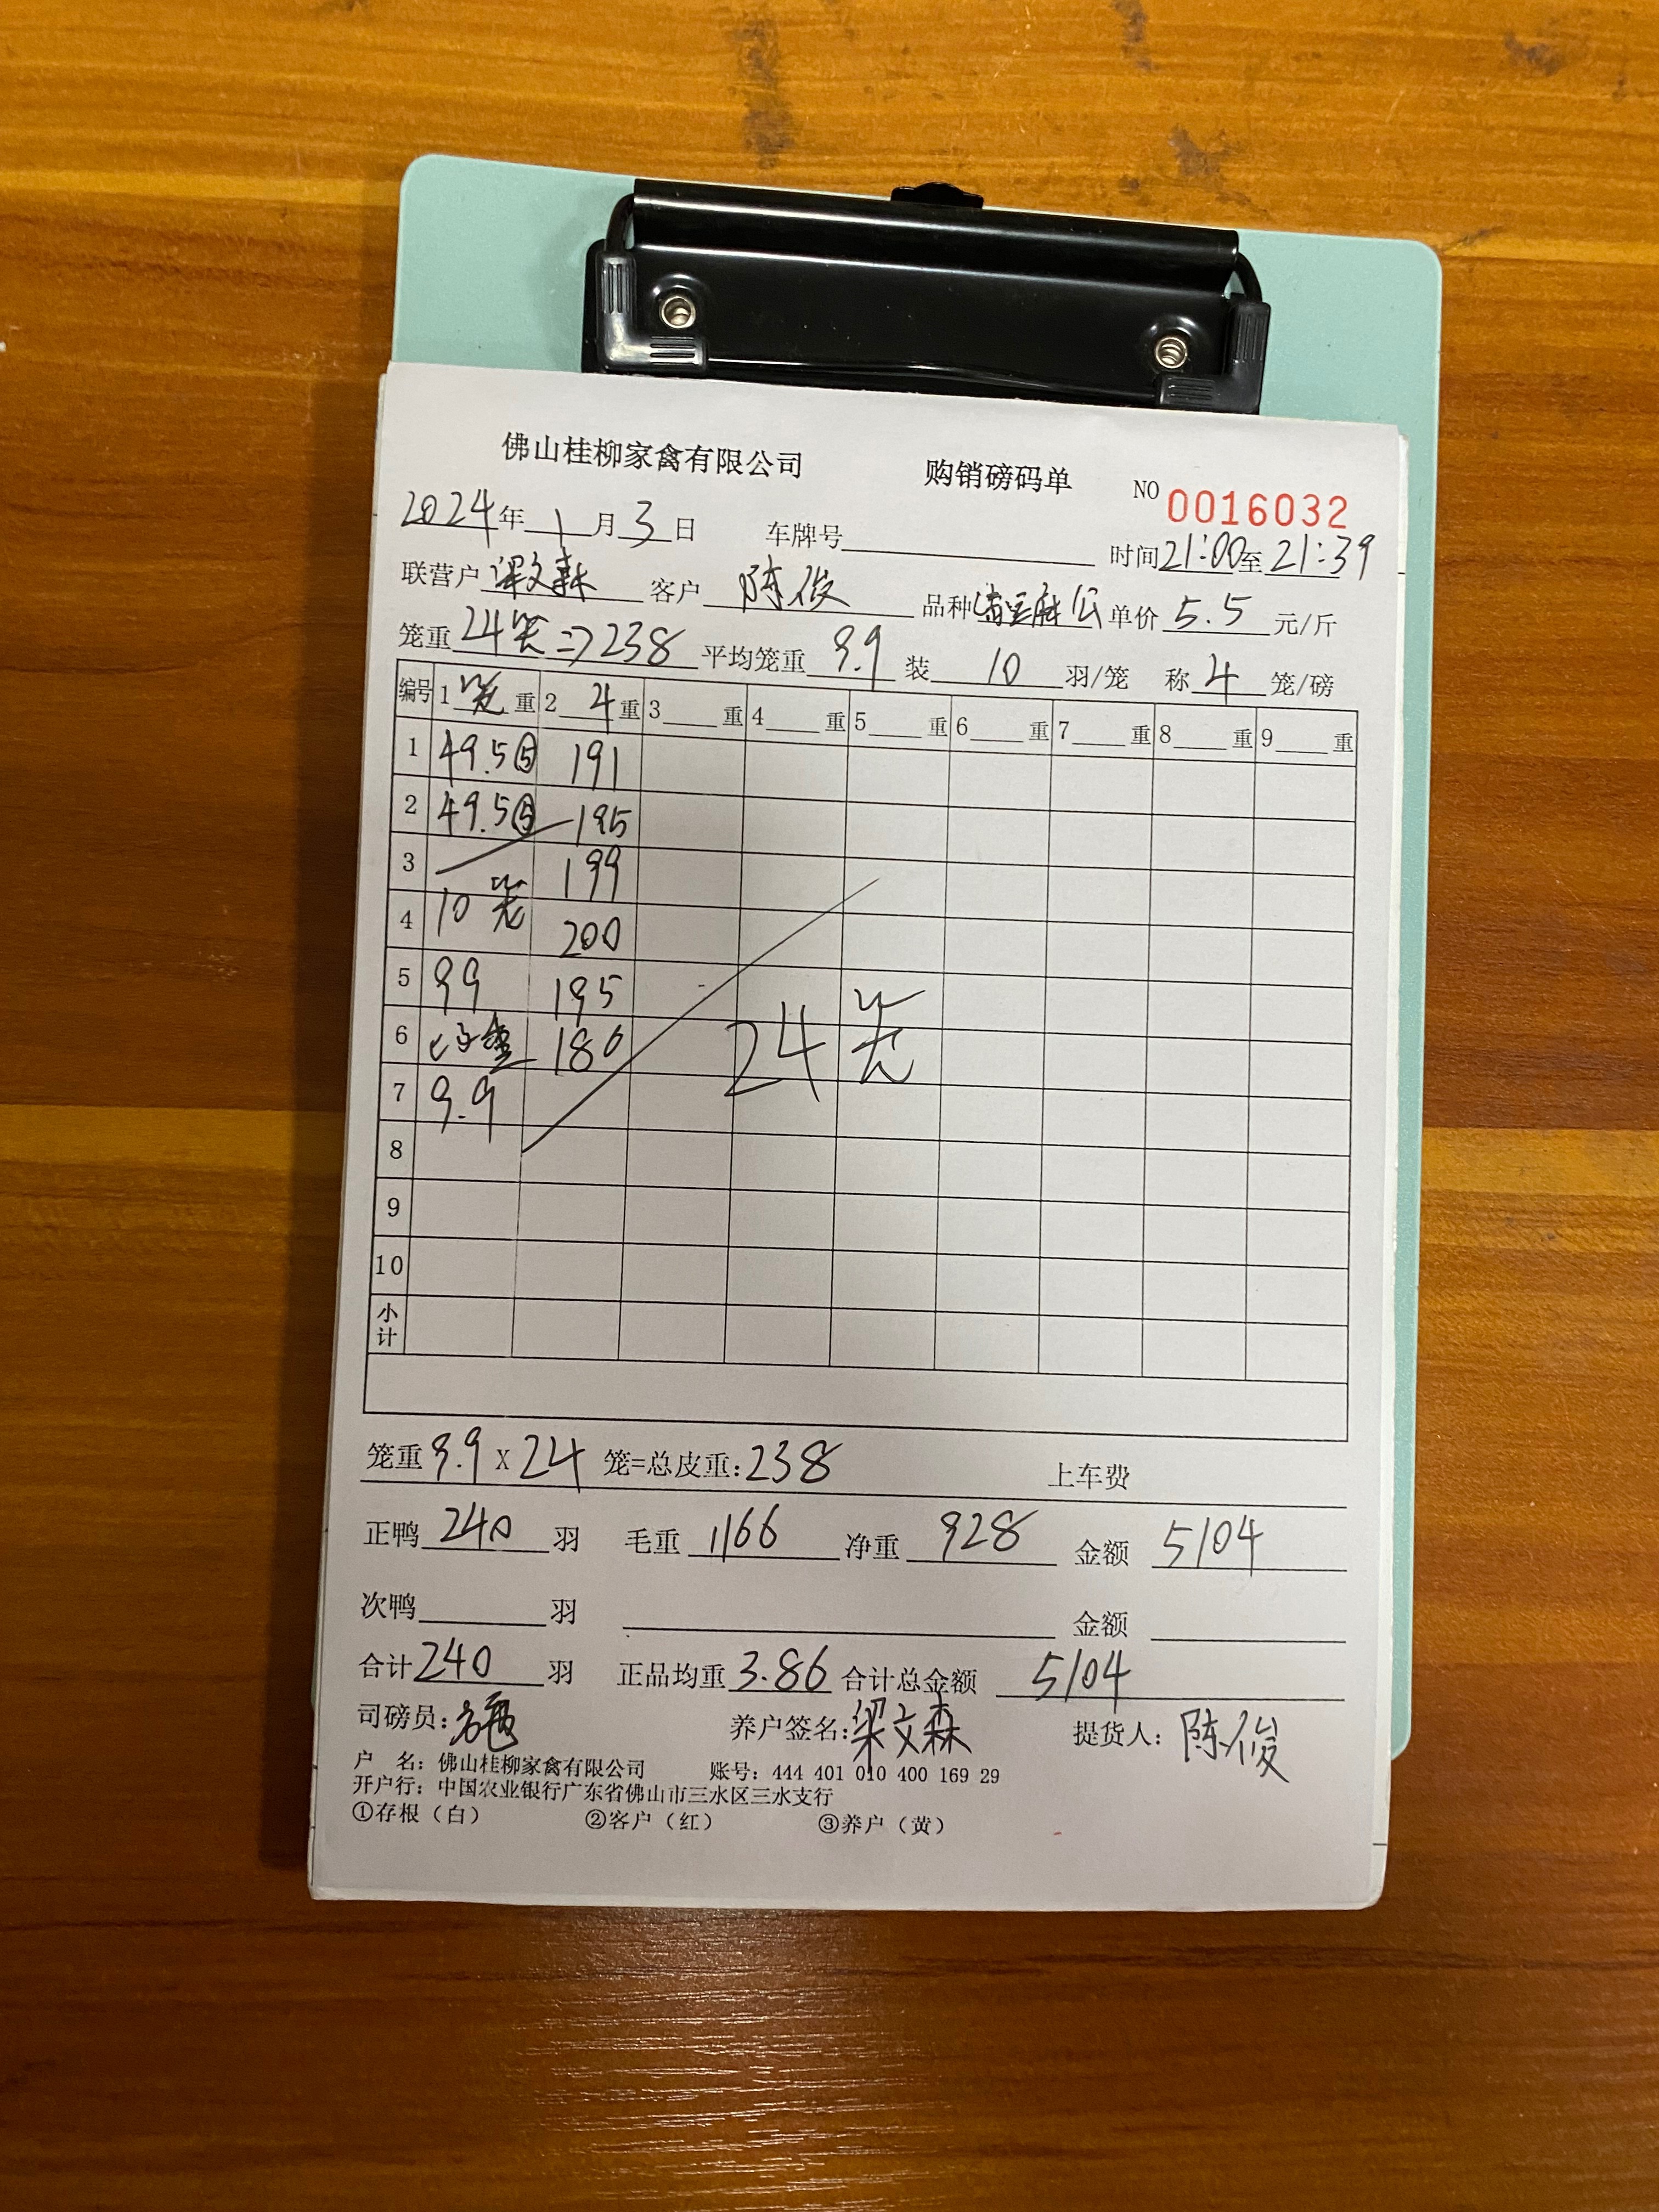 佛山桂柳家禽有限公司 购销磅码单 NO 0016032
2024年 1 月 3 日 车牌号 时间 21:00 至 21:39
联营户 梁文森 客户 陈俊 品种 公 单价 5.5 元/斤
笼重 24笼=>238 平均笼重 9.9 装 10 羽/笼 称 4 笼/磅
编号 1 笼 重 2 4 重 3 重 4 重 5 重 6 重 7 重 8 重 9 重
1 49.5⑤ 191
2 49.5⑤ 195
3 199
4 10笼 200
5 99 195
6 186
7 9.9
24笼
8
9
10
小计
笼重 9.9 X 24 笼=总皮重:238 上车费
正鸭 240 羽 毛重 1166 净重 928 金额 5104
次鸭 羽 金额
合计 240 羽 正品均重 3.86 合计总金额 5104
司磅员: 养户签名:梁文森 提货人: 陈俊
户 名: 佛山桂柳家禽有限公司 账号: 444 401 010 400 169 29
开户行: 中国农业银行广东省佛山市三水区三水支行
①存根（白） ②客户（红） ③养户（黄）